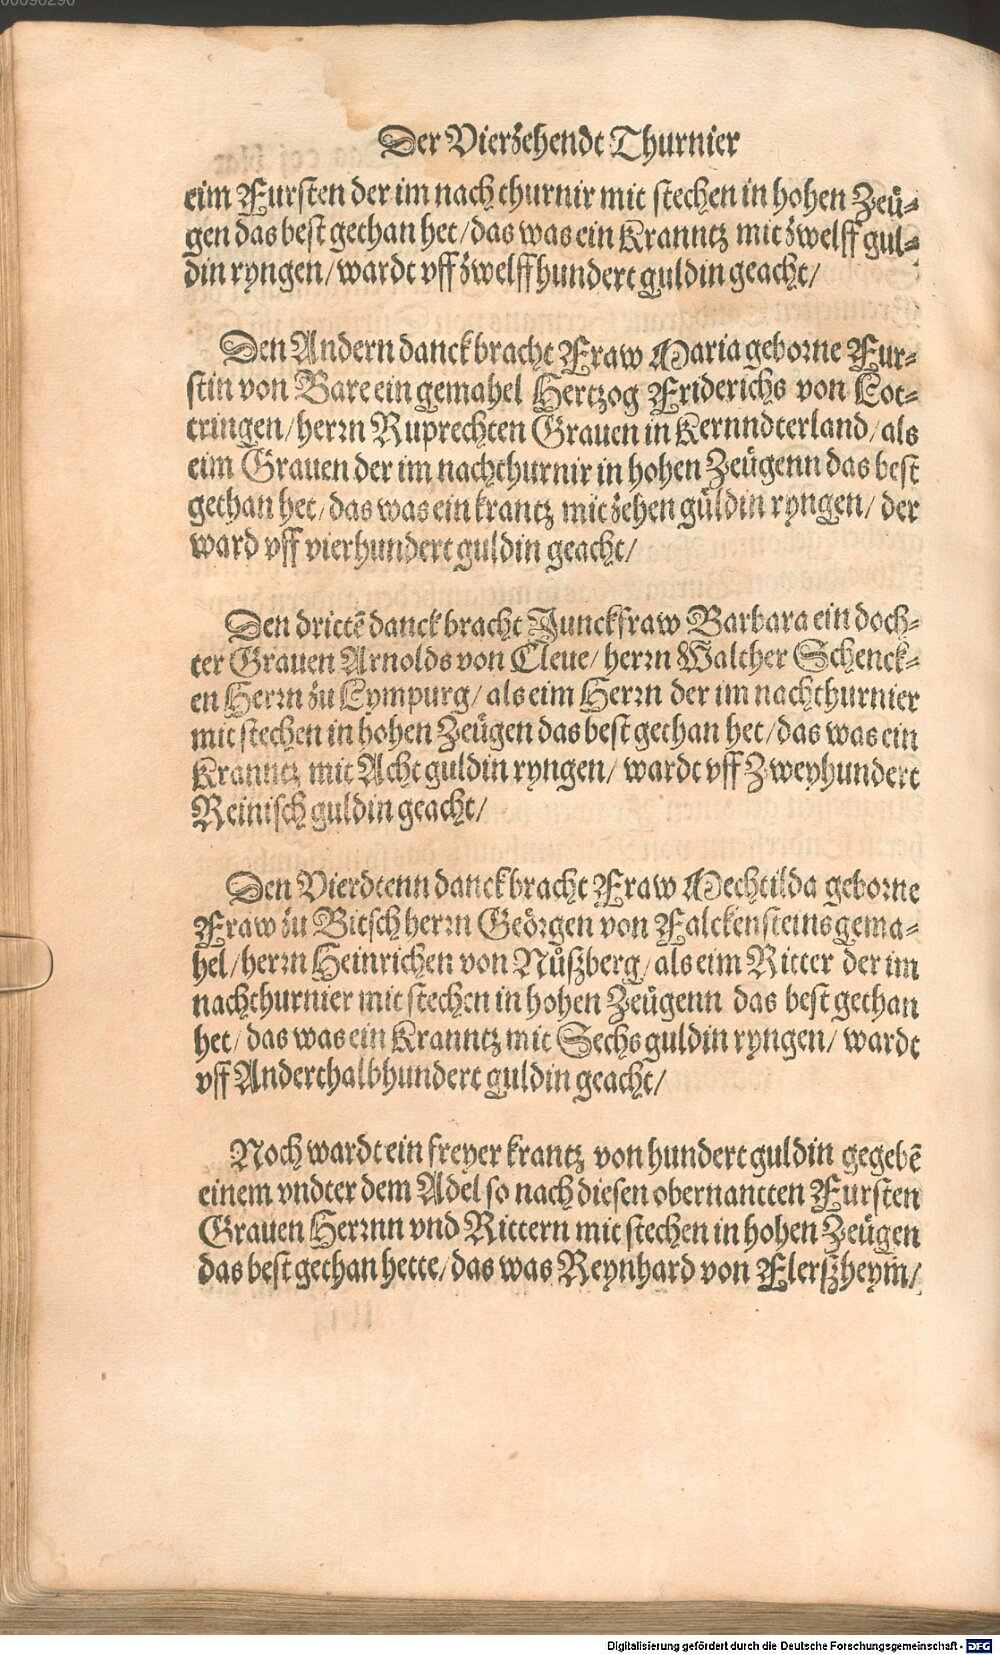 00090290
Der Vierzehendt Thurnier
eim Fursten der im nachthurnir mit stechen in hohen Zeü-
gen das best gethan het/ das was ein Kranntz mit zwelff gul-
din ryngen/ wardt vff zwelffhundert guldin geacht/
Den Andern danck bracht Fraw Maria geborne Fur-
stin von Bare ein gemahel Hertzog Friderichs von Lot-
tringen/ herrn Ruprechten Grauen in Kernndterland/ als
eim Grauen der im nachthurnir in hohen Zeügenn das best
gethan het/ das was ein krantz mit zehen güldin ryngen/ der
ward vff vierhundert guldin geacht/
Den drittē danck bracht Junckfraw Barbara ein doch-
ter Grauen Arnolds von Cleue/ herrn Walther Schenck-
en Herrn zu Lympurg/ als eim Herrn der im nachthurnier
mit stechen in hohen Zeügen das best gethan het/ das was ein
Kranntz mit Acht guldin ryngen/ wardt vff Zweyhundert
Reinisch guldin geacht/
Den Vierdtenn danck bracht Fraw Mechtilda geborne
Fraw zu Bitsch herrn Geörgen von Falckensteins gema-
hel/ herrn Heinrichen von Nůßberg/ als eim Ritter der im
nachthurnier mit stechen in hohen Zeügenn das best gethan
het/ das was ein Kranntz mit Sechs guldin ryngen/ wardt
vff Anderthalbhundert guldin geacht/
Noch wardt ein freyer krantz von hundert guldin gegebē
einem vndter dem Adel so nach diesen obernantten Fursten
Grauen Herrnn vnd Rittern mit stechen in hohen Zeügen
das best gethan hette/ das was Reynhard von Flerßheym̄/
Digitalisierung gefördert durch die Deutsche Forschungsgemeinschaft - DFG